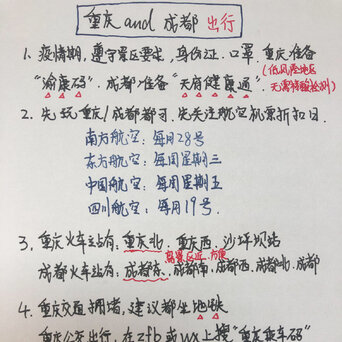 重庆 and 成都 出行
1. 疫情期, 遵守景区要求, 身份证, 口罩, 重庆准备
(低风险地区
"渝康码", 成都准备 "天府健康通", 无需核酸检测)
2. 先玩重庆/成都都可, 先关注航空机票折扣日.
南方航空: 每月28号
东方航空: 每周星期三
中国航空: 每周星期五
四川航空: 每月19号.
3. 重庆火车站有: 重庆北, 重庆西, 沙坪坝站
离景区近, 方便
成都火车站有: 成都东, 成都南, 成都西, 成都北, 成都
4. 重庆交通拥堵, 建议都坐地铁
重庆公交出行, 在zfb或wx上搜"重庆乘车码"